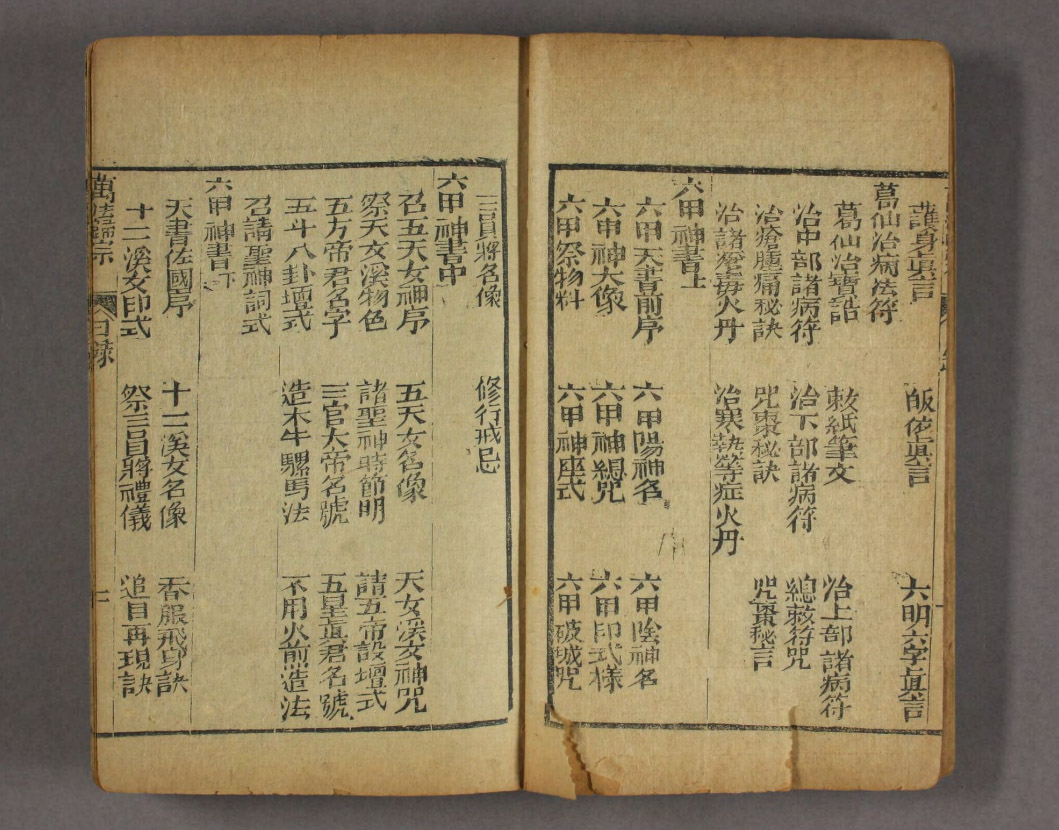 護身真言 皈依真言 六明六字真言
葛仙治病法符
葛仙治寶誥 敕紙筆文 治上部諸病符
治中部諸病符 治下部諸病符 總敕符咒
治瘡腫痛秘訣 咒棗秘訣 咒棗秘言
治諸瘡毒火丹 治寒熱等症火丹
六甲神書上
六甲天書前序 六甲陽神名 六甲陰神名
六甲神大像 六甲神總咒 六甲印式樣
六甲祭物料 六甲神座式 六甲破城咒
三員將名像 修行戒忌
六甲神書中
召五天女神序 五天女名像 天女溪女神咒
祭天女溪物色 諸聖神時節明 請五帝設壇式
五方帝君名字 三官大帝名號 五星真君名號
五斗八卦壇式 造木牛騾馬法 不用火煎造法
召請聖神詞式
六甲神書下
天書佐國序 十二溪女名像 香服飛身訣
十二溪女印式 祭三員將禮儀 追目再現訣
萬法歸宗 目錄